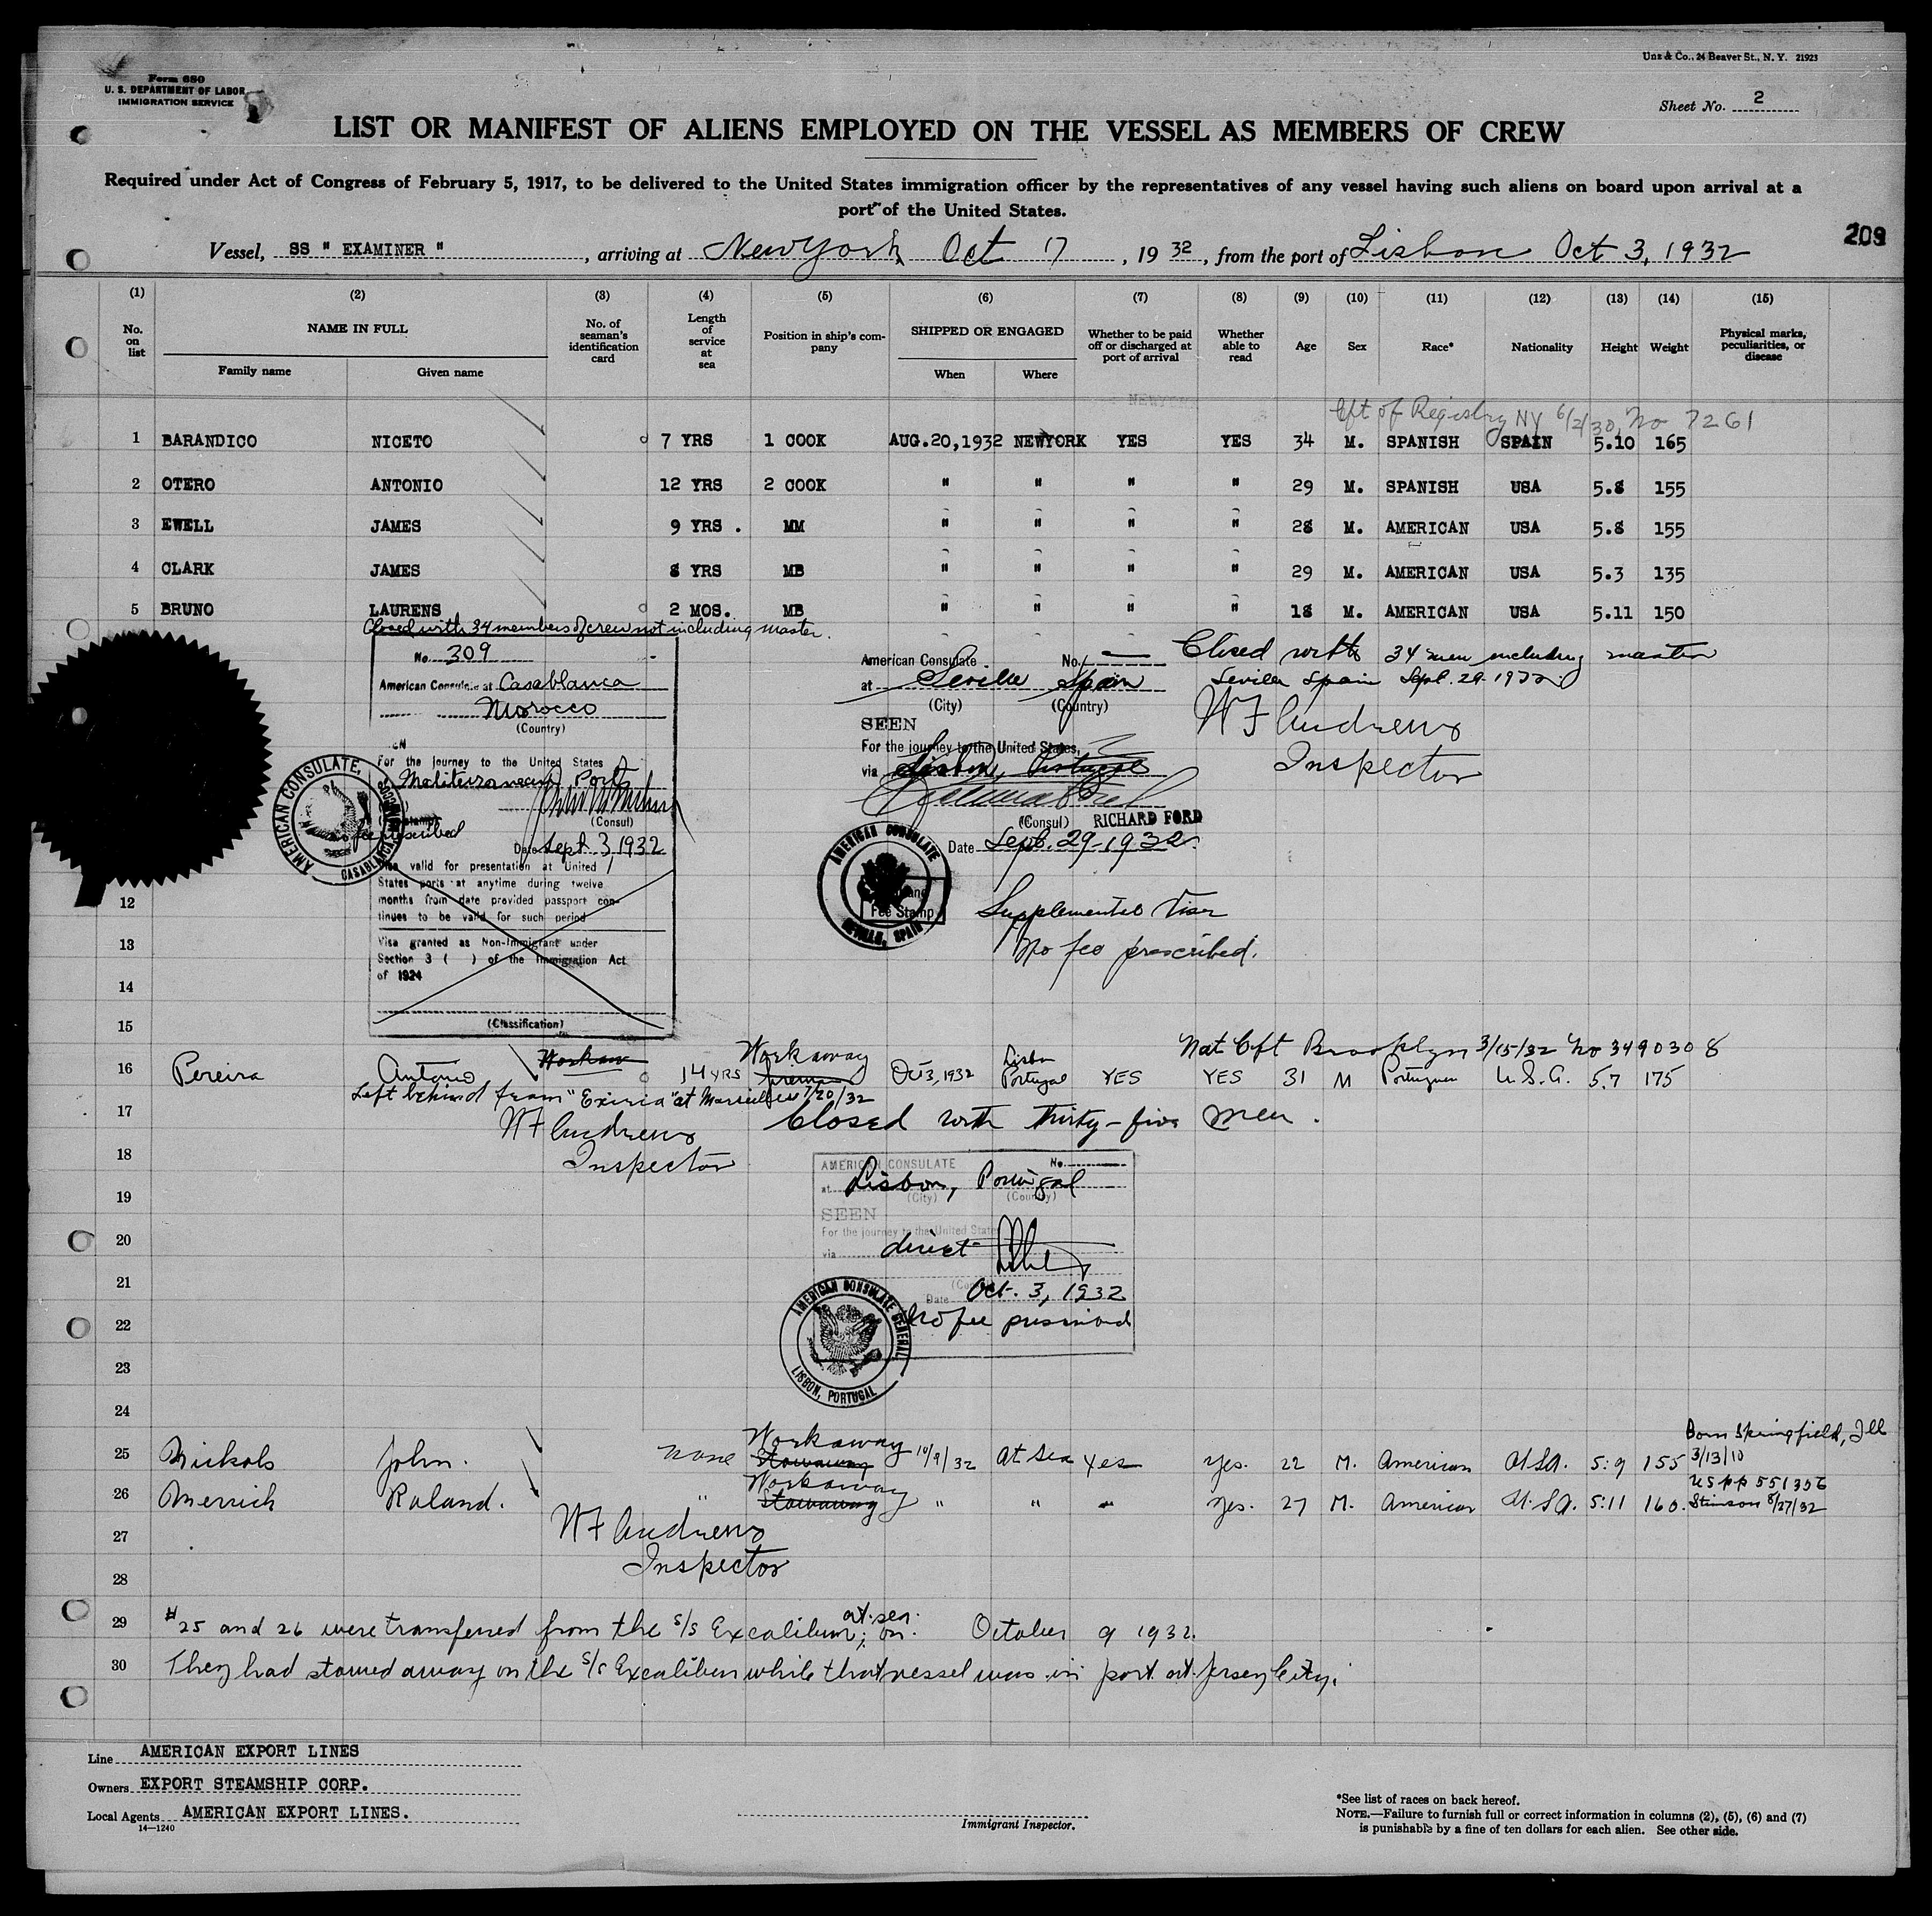 Form 680
U. S. DEPARTMENT OF LABOR
IMMIGRATION SERVICE
Unz & Co., 24 Beaver St., N. Y. 21923
Sheet No. 2
LIST OR MANIFEST OF ALIENS EMPLOYED ON THE VESSEL AS MEMBERS OF CREW
Required under Act of Congress of February 5, 1917, to be delivered to the United States immigration officer by the representatives of any vessel having such aliens on board upon arrival at a
port of the United States.
209
Vessel, SS " EXAMINER " , arriving at New York Oct 17 , 19 32 , from the port of Lisbon Oct 3, 1932
(1) (2) (3) (4) (5) (6) (7) (8) (9) (10) (11) (12) (13) (14) (15)
No. on list NAME IN FULL Family name Given name No. of seaman's identification card Length of service at sea Position in ship's company SHIPPED OR ENGAGED When Where Whether to be paid off or discharged at port of arrival Whether able to read Age Sex Race* Nationality Height Weight Physical marks, peculiarities, or disease
Cft of Registry NY 6/2/30, No 7261
1 BARANDICO NICETO 7 YRS 1 COOK AUG.20,1932 NEWYORK YES YES 34 M. SPANISH SPAIN 5.10 165
2 OTERO ANTONIO 12 YRS 2 COOK " " " " 29 M. SPANISH USA 5.8 155
3 EWELL JAMES 9 YRS . MM " " " " 28 M. AMERICAN USA 5.8 155
4 CLARK JAMES 8 YRS MB " " " " 29 M. AMERICAN USA 5.3 135
5 BRUNO LAURENS 2 MOS. MB " " " " 18 M. AMERICAN USA 5.11 150
Closed with 34 members of crew not including master.
No. 309
American Consulate at Casablanca
Morocco
(Country)
For the journey to the United States
Mediterranean Ports
(Consul)
fee prescribed
Date Sept. 3, 1932
Visa valid for presentation at United
States ports at anytime during twelve
months from date provided passport con-
tinues to be valid for such period
Visa granted as Non-Immigrant under
Section 3 ( ) of the Immigration Act
of 1924
(Classification)
AMERICAN CONSULATE, CASABLANCA, MOROCCO
American Consulate No.
at Seville Spain
(City) (Country)
SEEN
For the journey to the United States,
via Lisbon, Portugal
(Consul) RICHARD FORD
Date Sept. 29-1932.
AMERICAN CONSULATE
SEVILLE, SPAIN
Fee Stamp
Supplemental Visa
No fee prescribed.
Closed with 34 men including master
Seville Spain Sept. 29-1932.
W F Andrews
Inspector
12
13
14
15
Nat Cft Brooklyn 3/15/32 No 3490308
16 Pereira Antonio Workaw 14 YRS Workaway fireman Oct 3, 1932 Lisbon Portugal YES YES 31 M Portuguese U.S.A. 5.7 175
Left behind from "Exiria" at Marseilles 7/20/32
17 Closed with thirty-five men.
W F Andrews
18 Inspector
AMERICAN CONSULATE No.
19 at Lisbon, Portugal
(City) (Country)
SEEN
For the journey to the United States
20 via direct
21 (Consul)
Date Oct. 3, 1932
22 No fee prescribed
AMERICAN CONSULATE GENERAL
LISBON, PORTUGAL
23
24
Born Springfield, Ill
3/13/10
25 Nickols John. none Workaway Stowaway 10/9/32 At Sea Yes Yes. 22 M. American U.S.A. 5:9 155
US pp 551356
26 Merrich Roland. " Workaway Stowaway " " " Yes. 27 M. American U.S.A. 5:11 160. Stimson 8/27/32
27 W F Andrews
Inspector
28
29 #25 and 26 were transferred from the S/S Excalibur; at sea. on. October 9 1932.
30 They had stowed away on the S/S Excalibur while that vessel was in port at Jersey City.
Line AMERICAN EXPORT LINES
Owners EXPORT STEAMSHIP CORP.
Local Agents AMERICAN EXPORT LINES.
14—1240
Immigrant Inspector.
*See list of races on back hereof.
NOTE.—Failure to furnish full or correct information in columns (2), (5), (6) and (7)
is punishable by a fine of ten dollars for each alien. See other side.